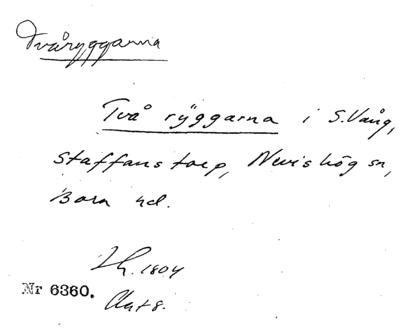 Tvåryggarna
Två ryggarna i S.Vång,
Staffanstorp, Nevishög sn,
Bara hd.
1804
Nr 6360.